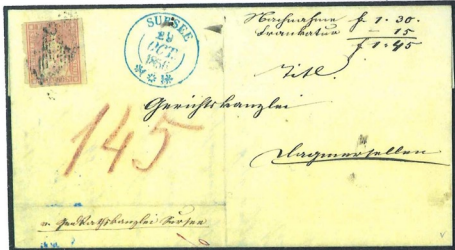 SURSEE
29
OCT.
1856
Nachnahme fr 1.30.
Frankatur — 15
fr 1.45
Titl.
Gerichtskanzlei
Dagmersellen
145
v. Gerichtskanzlei Sursee